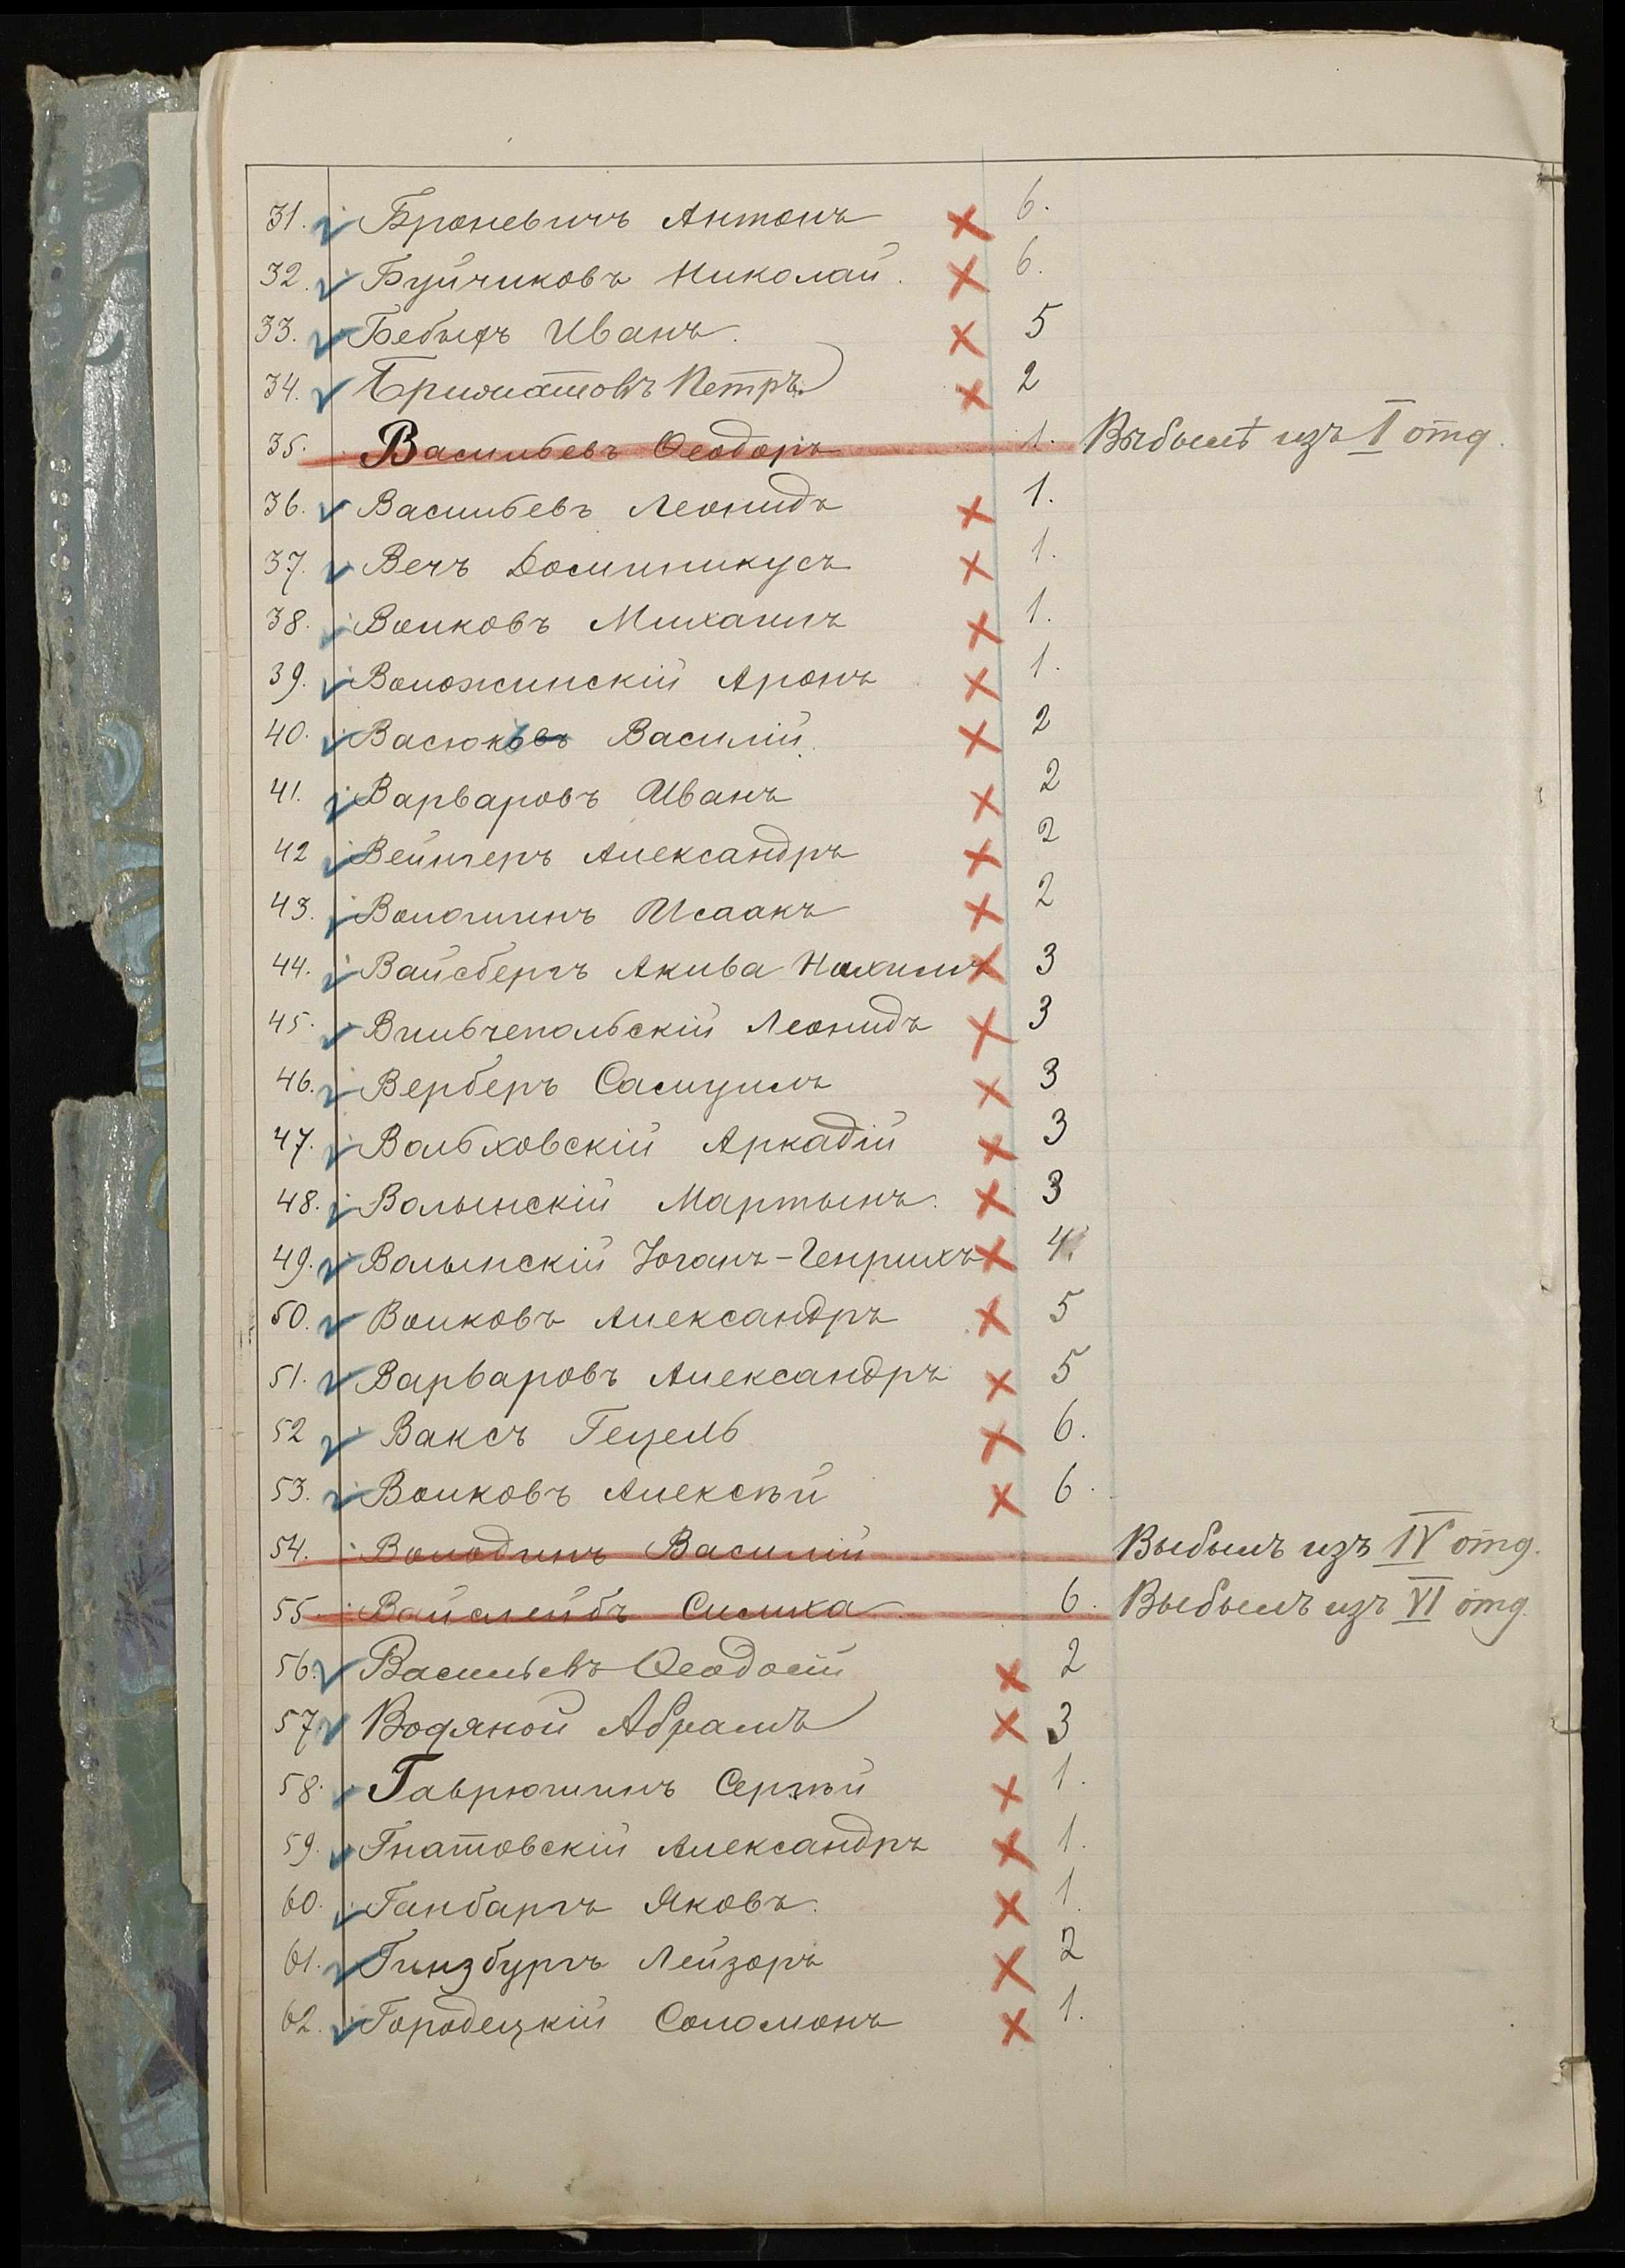 31. Броневичъ Антонъ 6.
32. Буйчиковъ Николай. 6.
33. Бебыхъ Иванъ. 5
34. Петръ 2
35. Васильевъ Ѳеодоръ 1. Выбылъ изъ I отд.
36. Васильевъ Леонидъ 1.
37. Вечъ Доминикусъ 1.
38. Волковъ Михаилъ 1.
39. Воложинскій Аронъ 1.
40. Васюковъ Василій. 2
41. Варваровъ Иванъ 2
42 Вейнгеръ Александръ 2
43. Волошинъ Исаакъ 2
44. Вайсбергъ Акива Нахимъ 3
45. Вильчепольскій Леонидъ 3
46. Верберъ Самуилъ 3
47. Вольховскій Аркадій 3
48. Волынскій Мартынъ. 3
49. Волынскій Іоганъ-Генрихъ 4.
50. Волковъ Александръ 5
51. Варваровъ Александръ 5
52 Ваксъ Гецель 6.
53. Волковъ Алексѣй 6.
54. Володинъ Василій Выбылъ изъ IV отд.
55. Вайслейбъ Симха 6. Выбылъ изъ VI отд.
56. Васильевъ Ѳеодосій 2
57. Водяной Абрамъ 3
58. Гаврюшинъ Сергѣй 1.
59. Гнатовскій Александръ 1.
60. Ганбаргъ Яковъ. 1.
61. Гинзбургъ Лейзоръ 2
62. Городецкій Соломонъ 1.